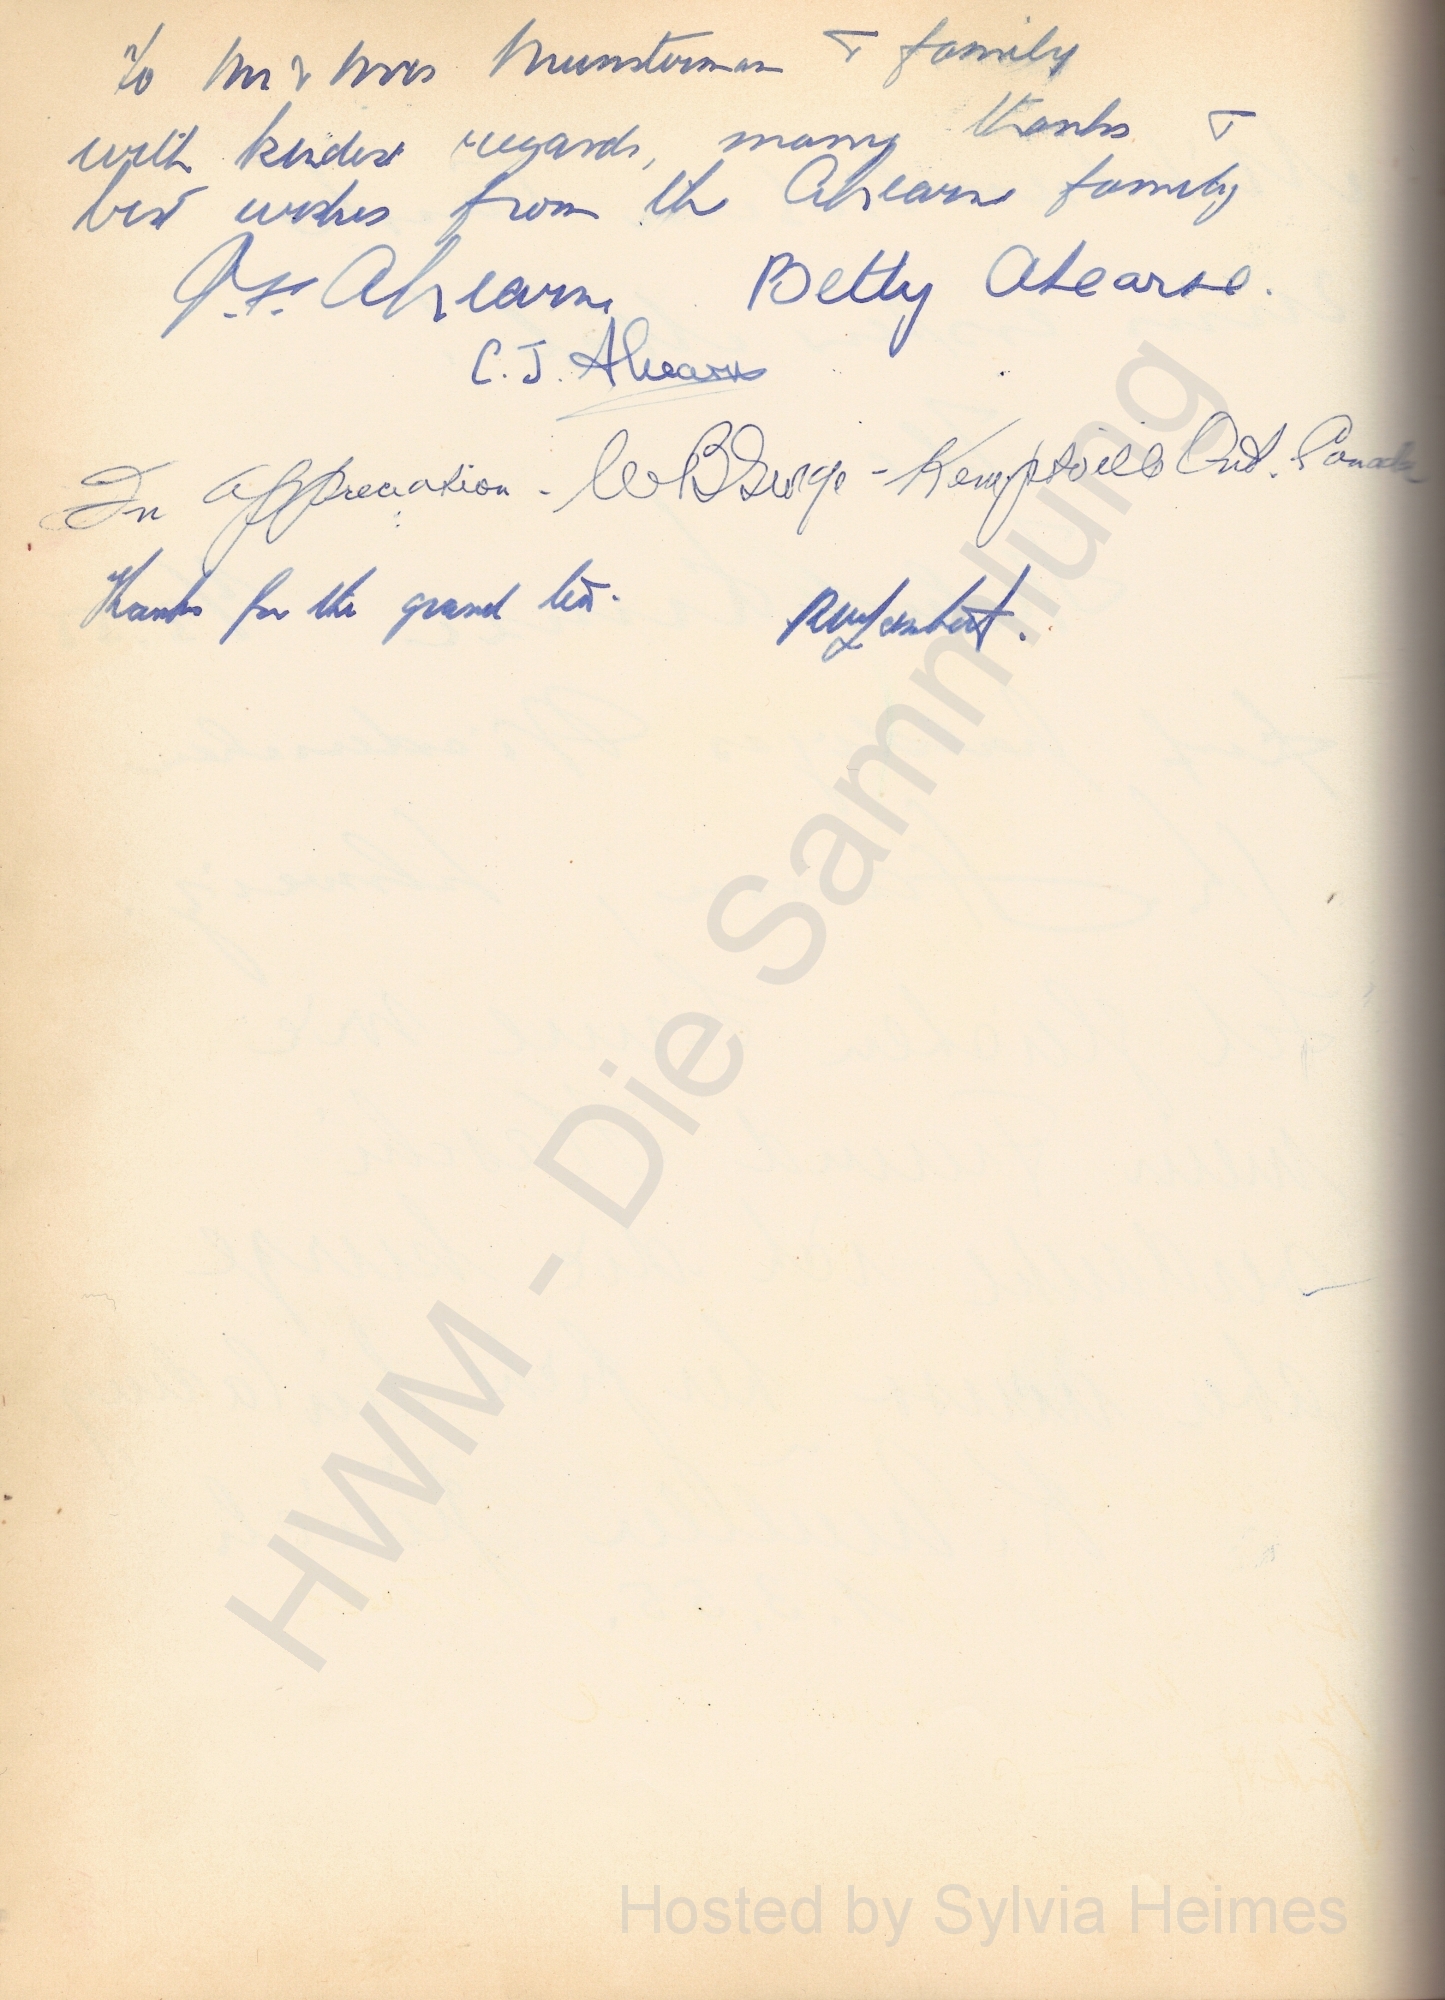 To Mr & Mrs Munsterman & family
with kindest regards, many thanks &
best wishes from the Ahearne family
J.F. Ahearne Betty Ahearne.
C.J. Ahearne
In appreciation - W B George - Kemptville Ont. Canada
Thanks for the grand tea. RW Lambert.
HWM - Die Sammlung
Hosted by Sylvia Heimes